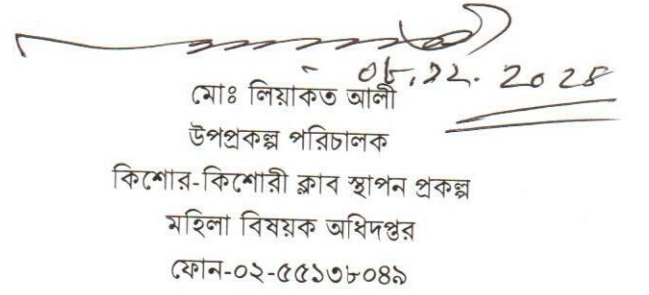 ০৮.১২.২০২৪
মোঃ লিয়াকত আলী
উপপ্রকল্প পরিচালক
কিশোর-কিশোরী ক্লাব স্থাপন প্রকল্প
মহিলা বিষয়ক অধিদপ্তর
ফোন-০২-৫৫১৩৮০৪৯